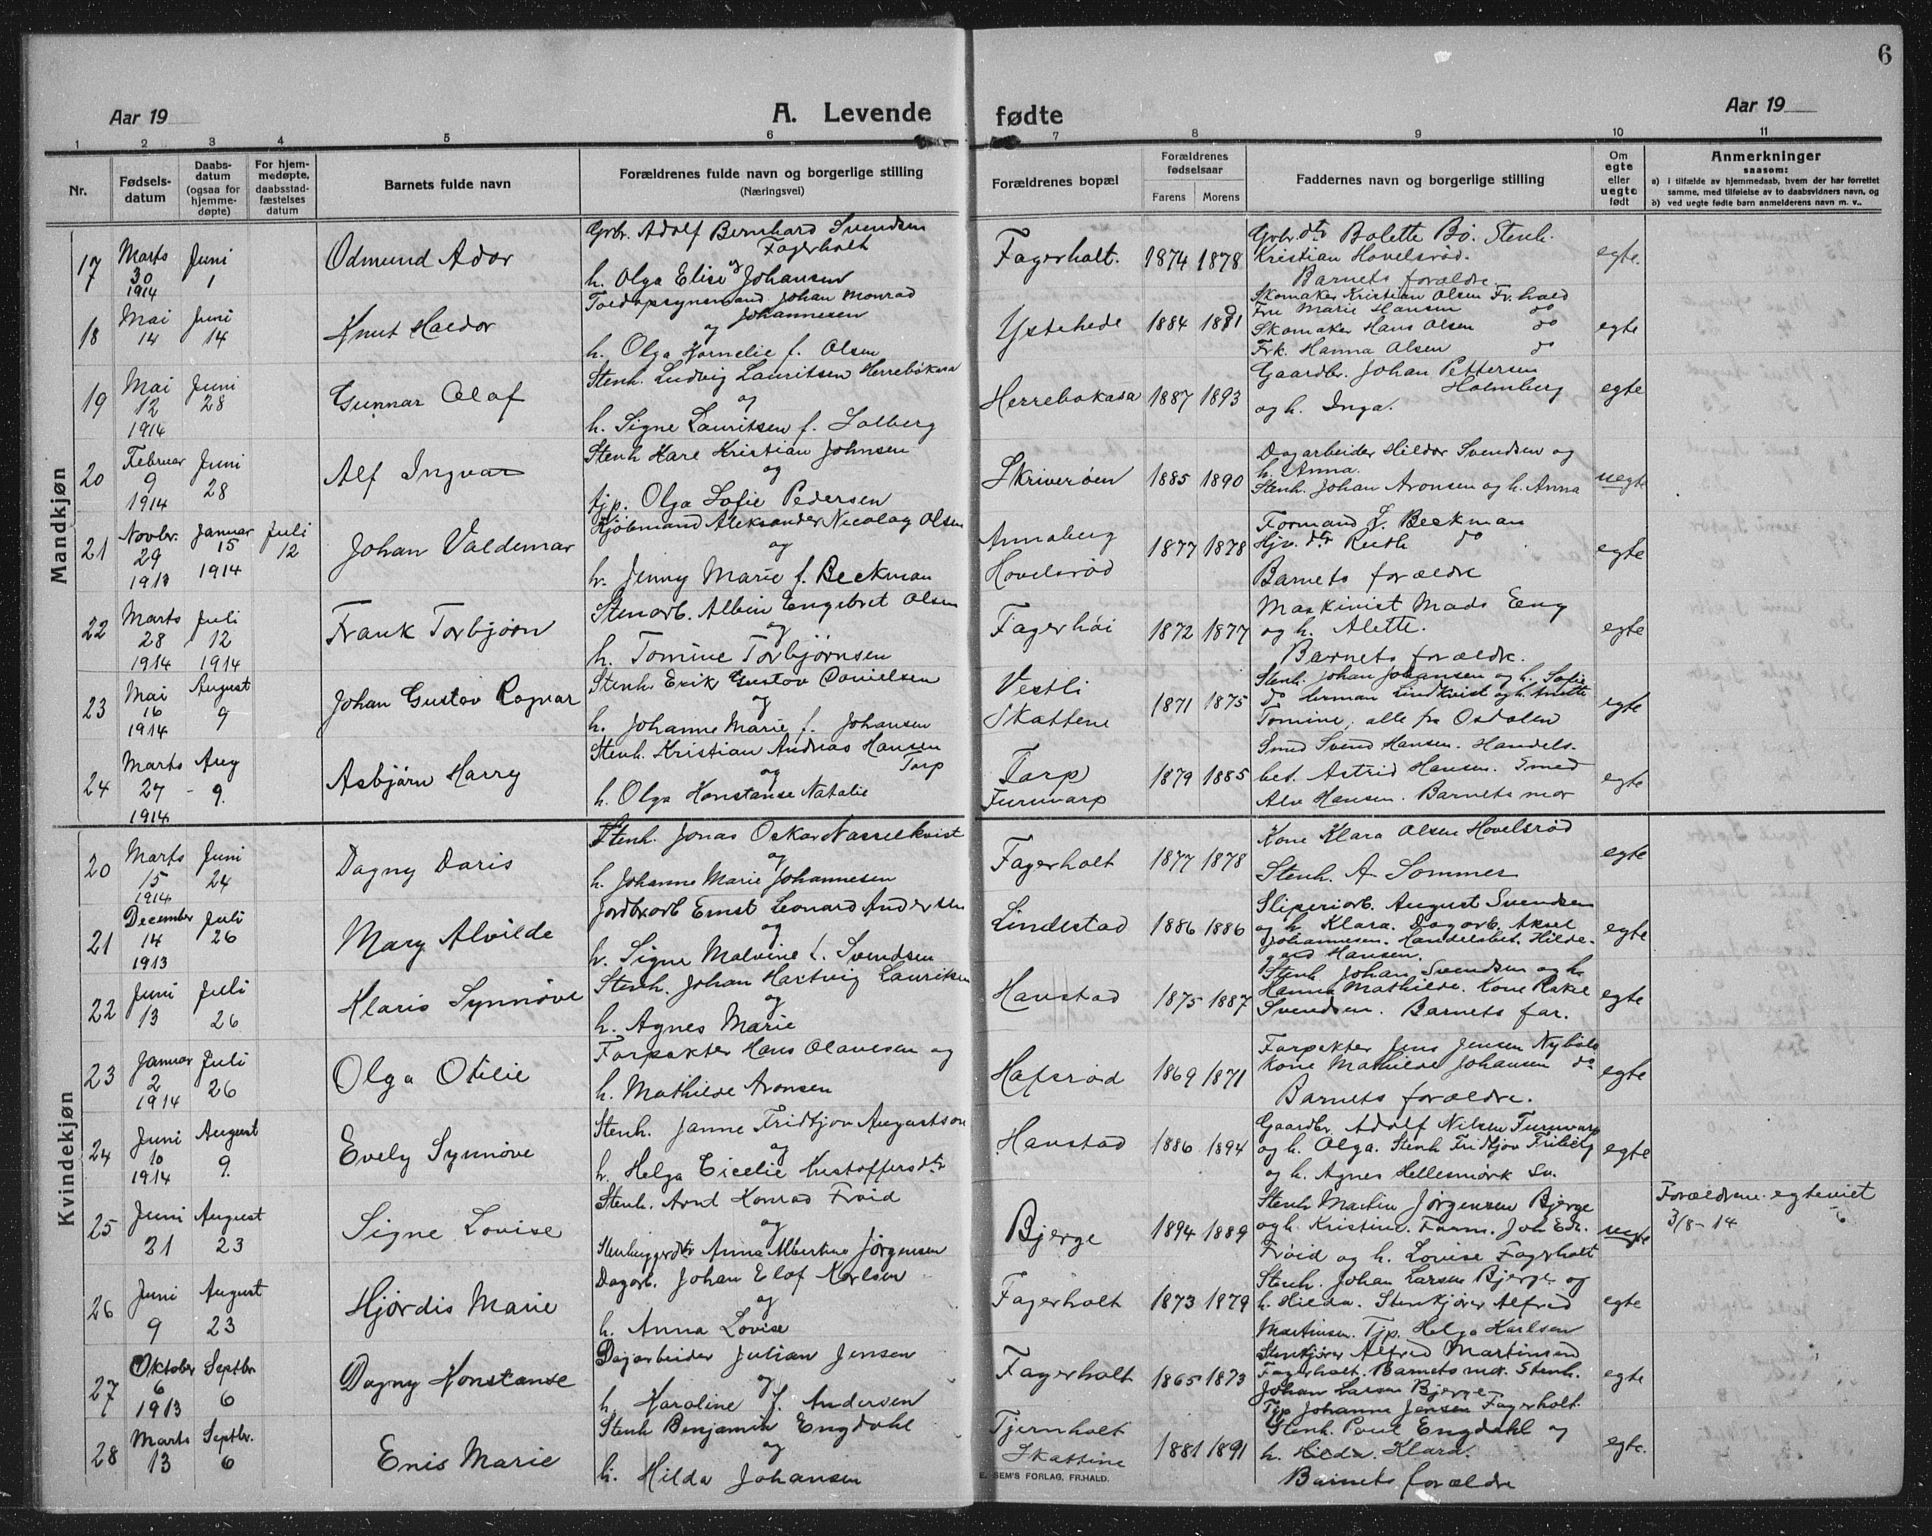 6
Aar 19
A. Levende
fødte
Aar 19
1 2 3 4 5 6 7 8 9 10 11
Nr.
Fødsels-
datum
Daabs-
datum
(ogsaa for
hjemme-
døpte)
For hjem-
medøpte,
daabsstad-
fæstelses
datum
Barnets fulde navn
Forældrenes fulde navn og borgerlige stilling
(Næringsvei)
Forældrenes bopæl
Forældrenes
fødselsaar
Farens Morens
Faddernes navn og borgerlige stilling
Om
egte
eller
uegte
født
Anmerkninger
saasom:
a) i tilfælde av hjemmedaab, hvem der har forrettet
samme, med tilføielse av to daabsvidners navn, og
b) ved uegte fødte barn anmelderens navn m. v..
Mandkjøn
17
Marts
30
1914
Juni
1
Odmund Ador
Grbr. Adolf Bernhard Svendsen
Fagerholt
og
h. Olga Elise Johansen
Fagerholt.
1874 1878
Grbr. dtr Bolette Bø. Stenh.
Kristian Hovelsrød.
Barnets forældre.
egte.
18
Mai
14
Juni
14
Knut Haldor
Toldopsynsmand Johan Monrad
Johannesen
og
h. Olga Kornelie f. Olsen
Ystehede
1884 1881
Skomaker Kristian Olsen Fr.hald
Fru Marie Hansen do
Skomaker Hans Olsen do
Frk. Hanna Olsen do
egte
19
Mai
12
1914
Juni
28
Gunnar Olaf
Stenh. Ludvig Lauritsen Herrebøkasa
og
h. Signe Lauritsen f. Solberg
Herrebøkasa
1887 1893
Gaardbr. Johan Pettersen
Holmberg
og h. Inga.
egte
20
Februar
9
1914
Juni
28
Alf Ingvar
Stenh Kare Kristian Johnsen
og
tjp. Olga Sofie Pedersen
Skriverøen
1885 1890
Dagarbeider Hildor Svendsen og
h. Anna.
Stenh. Johan Aronsen og h. Anna
uegte
21
Novbr.
29
1913
Januar
15
1914
Juli
12
Johan Valdemar
Kjøbmand Aleksander Nicolay Olsen
og
h. Jenny Marie f. Beckman
Annaberg
Hovelsrød
1877 1878
Formand J. Beckman
Hjv. dtr Ruth do
Barnets forældre
egte
22
Marts
28
1914
Juli
12
1914
Frank Torbjørn
Stenarb. Albin Engebret Olsen
og
h. Tomine Torbjørnsen
Fagerhøi
1872 1877
Maskinist Mads Eng
og h. Alette.
Barnets forældre.
egte
23
Mai
16
1914
August
9
Johan Gustav Ragnar
Stenh. Erik Gustav Danielsen
og
h. Johanne Marie f. Johansen
Vestli
Skattene
1871 1875
Stenh. Johan Johansen og h. Sofie
do Herman Lindkvist og h. Anette
Tomine, alle fra Osdalen
egte
24
Marts
27
1914
Aug
9.
Asbjørn Harry
Stenh. Kristian Andreas Hansen
Torp
og
h. Olga Konstanse Natalie
Torp
Furuvarp
1879 1885
Smed Svend Hansen. Handels-
bet. Astrid Hansen. Smed
Alv Hansen. Barnets mor
egte
Kvindekjøn
20
Marts
15
1914
Juni
24
Dagny Doris
Stenh. Jonas Oskar Nasselkvist
og
h. Johanne Marie Johannesen
Fagerholt
1877 1878
Kone Klara Olsen Hovelsrød
Stenh. A Sommer
egte
21
December
14
1913
Juli
26
Mary Alvilde
Jordbrarb Ernst Leonard Andersen
og
h. Signe Malvine f. Svendsen
Lindestad
1886 1886
Sliperiarb. August Svendsen
og h. Klara. Dagarb. Aksel
Johannesen. Handelsbet. Hilde-
gard Hansen.
egte
22
Juni
13
Juli
26
Klaris Synnøve
Stenh. Johan Hartvig Lauritsen
og
h. Agnes Marie
Havstad
1875 1887
Stenh Johan Svendsen og h.
Hanna Mathilde. Kone Rakel
Svendsen. Barnets far.
egte
23
Januar
2
1914
Juli
26
Olga Otilie
Forpakter Hans Olavesen og
h. Mathilde Aronsen
Hafsrød
1869 1871
Forpakter Jens Jensen Nybøle
Kone Mathilde Johansen do
Barnets forældre.
egte
24
Juni
10
1914
August
9.
Evely Synnøve
Stenh. Janne Fridtjov Augustson
og
h. Helga Cicelie Kristoffersdtr
Havstad
1886 1894
Gaardbr. Adolf Nilsen Furuvarp
og h. Olga. Stenh Fridtjov Friberg
og h. Agnes Hellesmørk Sv.
egte
25
Juni
21
August
23
Signe Lovise
Stenh. Arnt Konrad Frøid
og
Stenhuggerdtr Anna Albertine Jørgensen
Bjerge
1894 1889
Stenh Martin Jørgensen Bjerge
og h. Kristine. Form. Joh Edv.
Frøid og h. Lovise Fagerholt
uegte
Forældrene egteviet
3/8-14
26
Juni
9
August
23
Hjørdis Marie
Dagarb. Johan Elof Karlsen
og
h. Anna Lovise
Fagerholt
1873 1879
Stenh. Johan Larsen Bjerge og
h. Hilda. Stenkjører Alfred
Martinsen. Tjp. Helga Karlsen
egte
27
Oktober
6
1913
Septbr
6
Dagny Konstanse
Dagarbeider Julian Jensen
og
h. Karoline f. Andersen
Fagerholt
1865 1873
Stenkjører Alfred Martinsen
Fagerholt. Barnets mor. Stenh.
Johan Larsen Bjerge
Tjp Johanne Jensen Fagerholt.
egte
28
Marts
13
Septbr.
6
Enis Marie
Stenh Benjamin Engdahl
og
h. Hilda Johansen
Tjernholt
Skattene
1881 1891
Stenh. Paul Engdahl og
h. Hilda. Klara.
Barnets forældre
egte.
SEM'S FORLAG, FR.HALD.